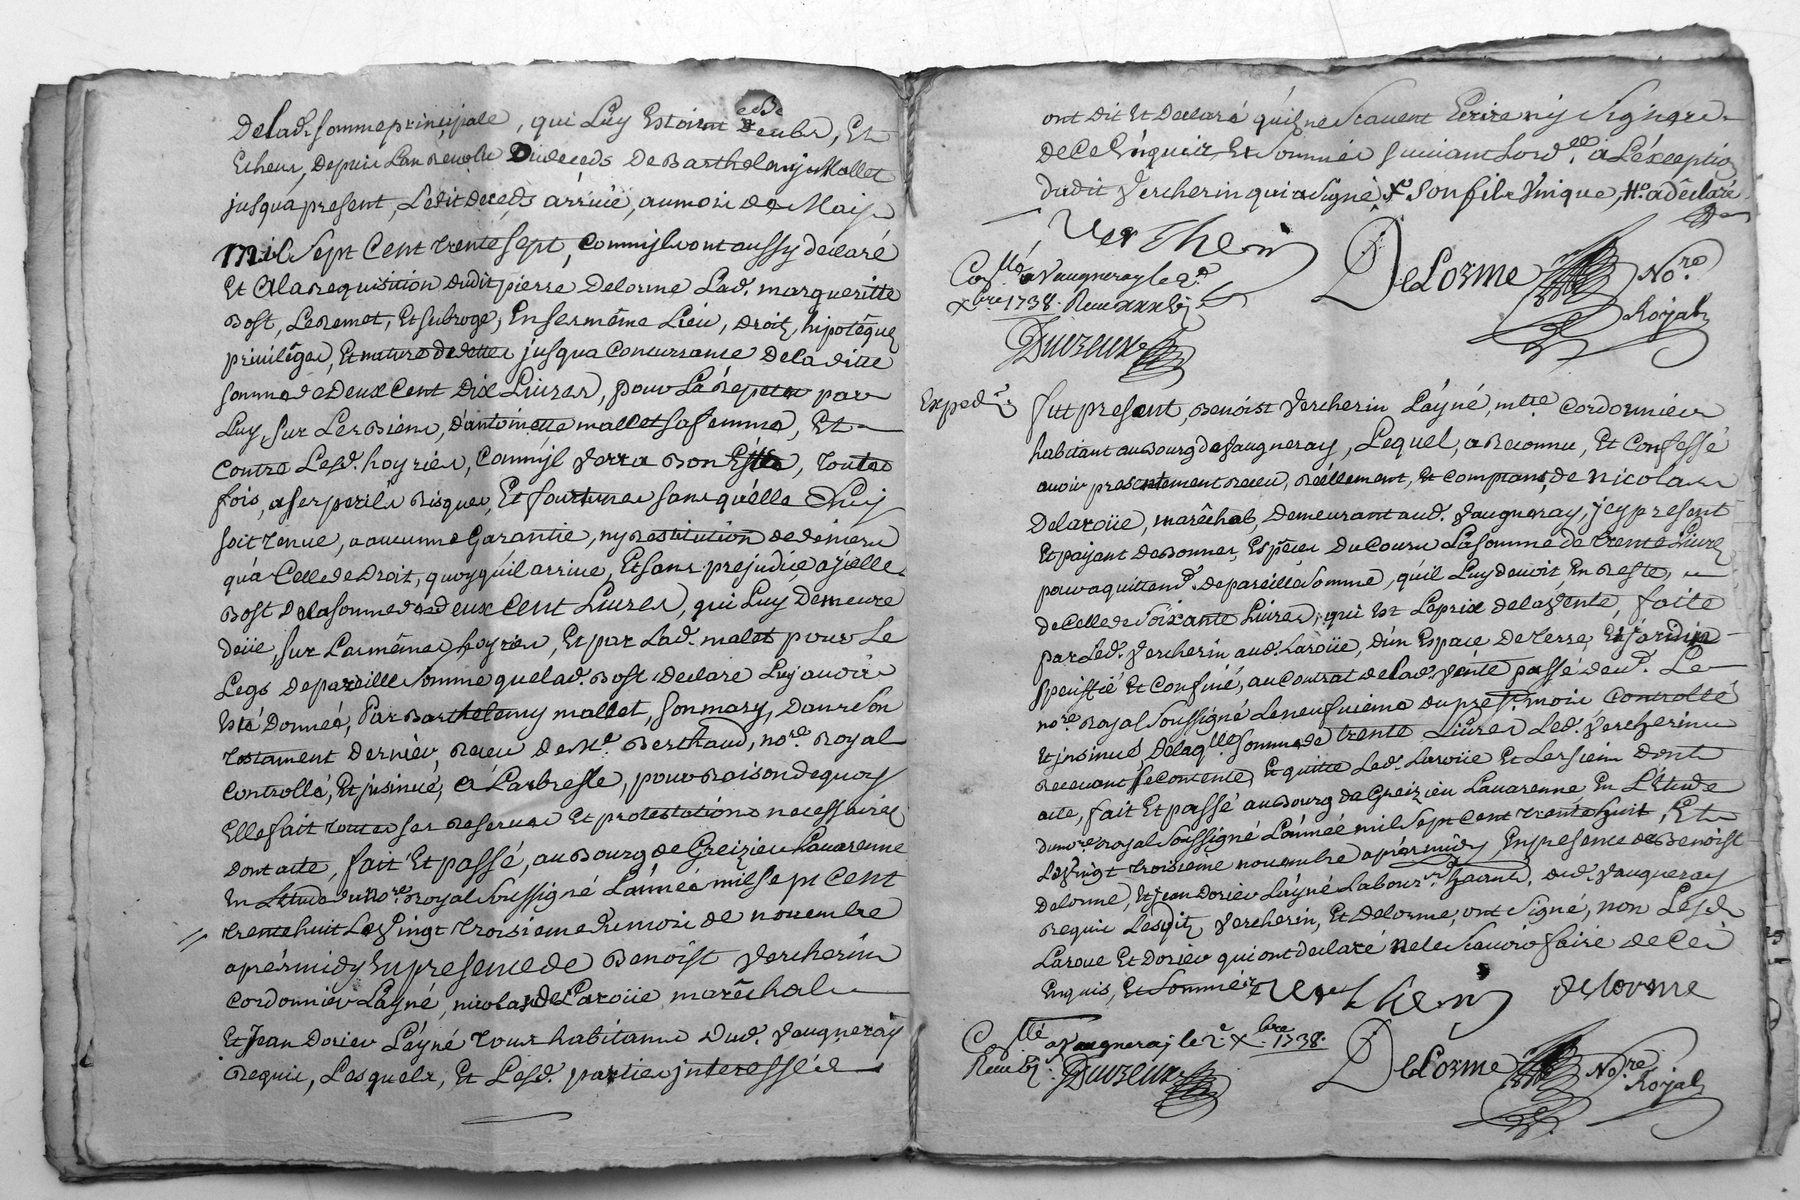 Delad. Somme principale, qui Luy Estoient deubs, Et
Echeus, Depuis Lan Revolu Du deceds De Barthelemy Mallet
jusqua present, Ledit deceds arrivé, au mois de May
Mil Sept Cent trente sept, Comm'jls ont aussy declaré
Et A la Requisition dudit pierre Delorme Lad. margueritte
Bost, Le Remet, Et subroge, En ses même Lieu, droit, hipotéque
privilêges, Et nature de dettes jusqua Concurrance de la ditte
somme de Deux Cent Dix Livres, pour La Répeter par
Luy, sur Les Biens, d'antoinette mallet sa femme, Et
Contre Lesd. hoyries, Comm'jl verra Bon Estre, toutes
fois, a ses perils Risques, Et fortunes sans qu'elle Luy
soit tenue, a aucunne Garantie, ny Restitution de deniers
qu'a Celle de Droit, quoy qu'il arrive, Et sans prejudice a jcelle
Bost de la somme de deux Cent Livres, qui Luy Demeure
deüe, sur Les mêmes hoyries, Et par Lad. malet pour Le
Legs de pareille Somme que lad. Bost declare Luy avoir
Esté Donnée, Par Barthelemy mallet, son mary, Dans Son
testament dernier, Receu de Me. Berthaud, nore. Royal
Controllé, Et jnsinué, A Larbresle, pour Raison de quoy
Elle fait toutes ses Reserves Et protestations necessaires
Dont acte, fait Et passé, au Bourg de Greizieu Lavarenne
En L'Etude du Nore. Royal Soussigné L'année mil sept Cent
trente huit Le Vingt troisieme du mois de novembre
aprés midy En presence de Benoist Vercherin
Cordonnier L'ayné, nicolas de Laroüe marêchal
Et Jean Dorieu L'ayné tous habitans dud. Vaugneray
Requis, Lesquels, Et Lesd. parties jnteressées
ont dit Et Declaré qu'ils ne Scavent Ecrire ny Signer
de Ce Enquis, Et Sommés suivant Lord.ce a L'éxception
dudit Vercherin qui a signé
Son fils Unique,
a déclaré
Verchery
Collé a Vaugneray le 2e.
Xbre 1738. Receu
Delorme Nore.
Royal
Expedr.
fut present, Benoist Vercherin L'ayné, mtre Cordonnier
habitant au Bourg de Vaugneray, Lequel, a Reconnu, Et Confessé
avoir presentement Receu, Réellement, Et Comptant, de nicolas
Delaroüe, marêchal, Demeurant aud. Vaugneray, jcy present
Et payant de Bonnes, Espêces du Cours La somme de trente Livres
pour aquittemt. de pareille Somme, qu'il Luy devoit En Reste,
de Celle de Soixante Livres, qui Est Le prix de la Vente, faite
par Led. Vercherin aud. Laroüe, d'un Espace de terre, Et jardin
speciffié Et Confiné, au Contrat de lad. Vente passé devt. Le
nore. Royal Soussigné Le neufvieme du prest. mois Controllé
Et jnsinué, De laqlle. Somme de trente Livres Led. Vercherin
Recevant se contente, Et quitte Led. Laroüe Et Les siens dont
acte, fait Et passé au Bourg de Greizieu Lavarenne En L'Etude
du nore. royal Soussigné L'année mil Sept Cent trente huit, Et
Le Vingt troisieme novembre aprés midy, En presence de Benoist
Delorme, Et jean Dorieu L'ayné Labours. dud. Vaugneray
Requis Lesdits Vercherin, Et Delorme, ont Signé, non Lesd.
Laroue Et Dorieu qui ont declaré ne le Scavoir faire de Ce
Enquis, Et Sommés
Verchery
delorme
Collé a Vaugneray le 2e. Xbre. 1738.
Delorme Nore.
Royal